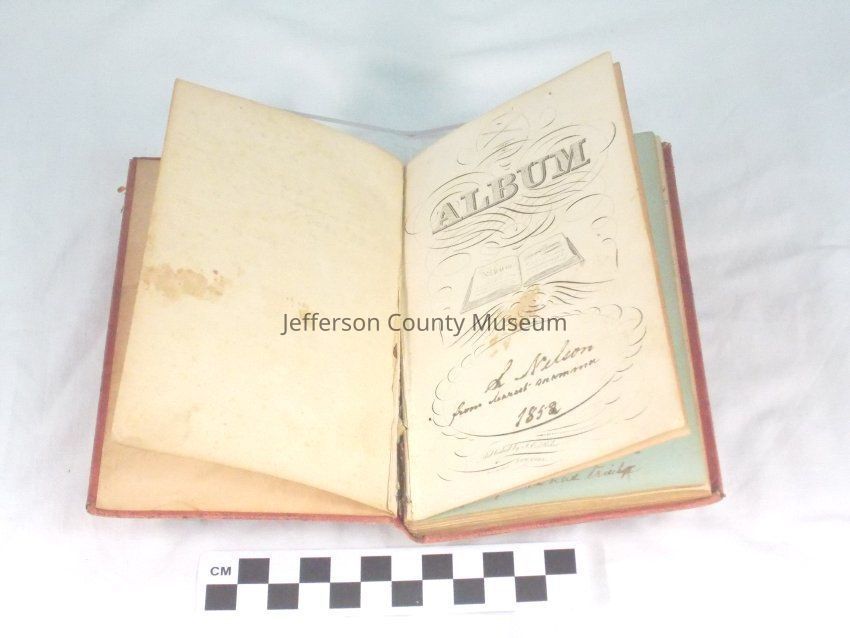 ALBUM
ALBUM
Jefferson County Museum
L Nelson
from dearest mamma
1858
CM